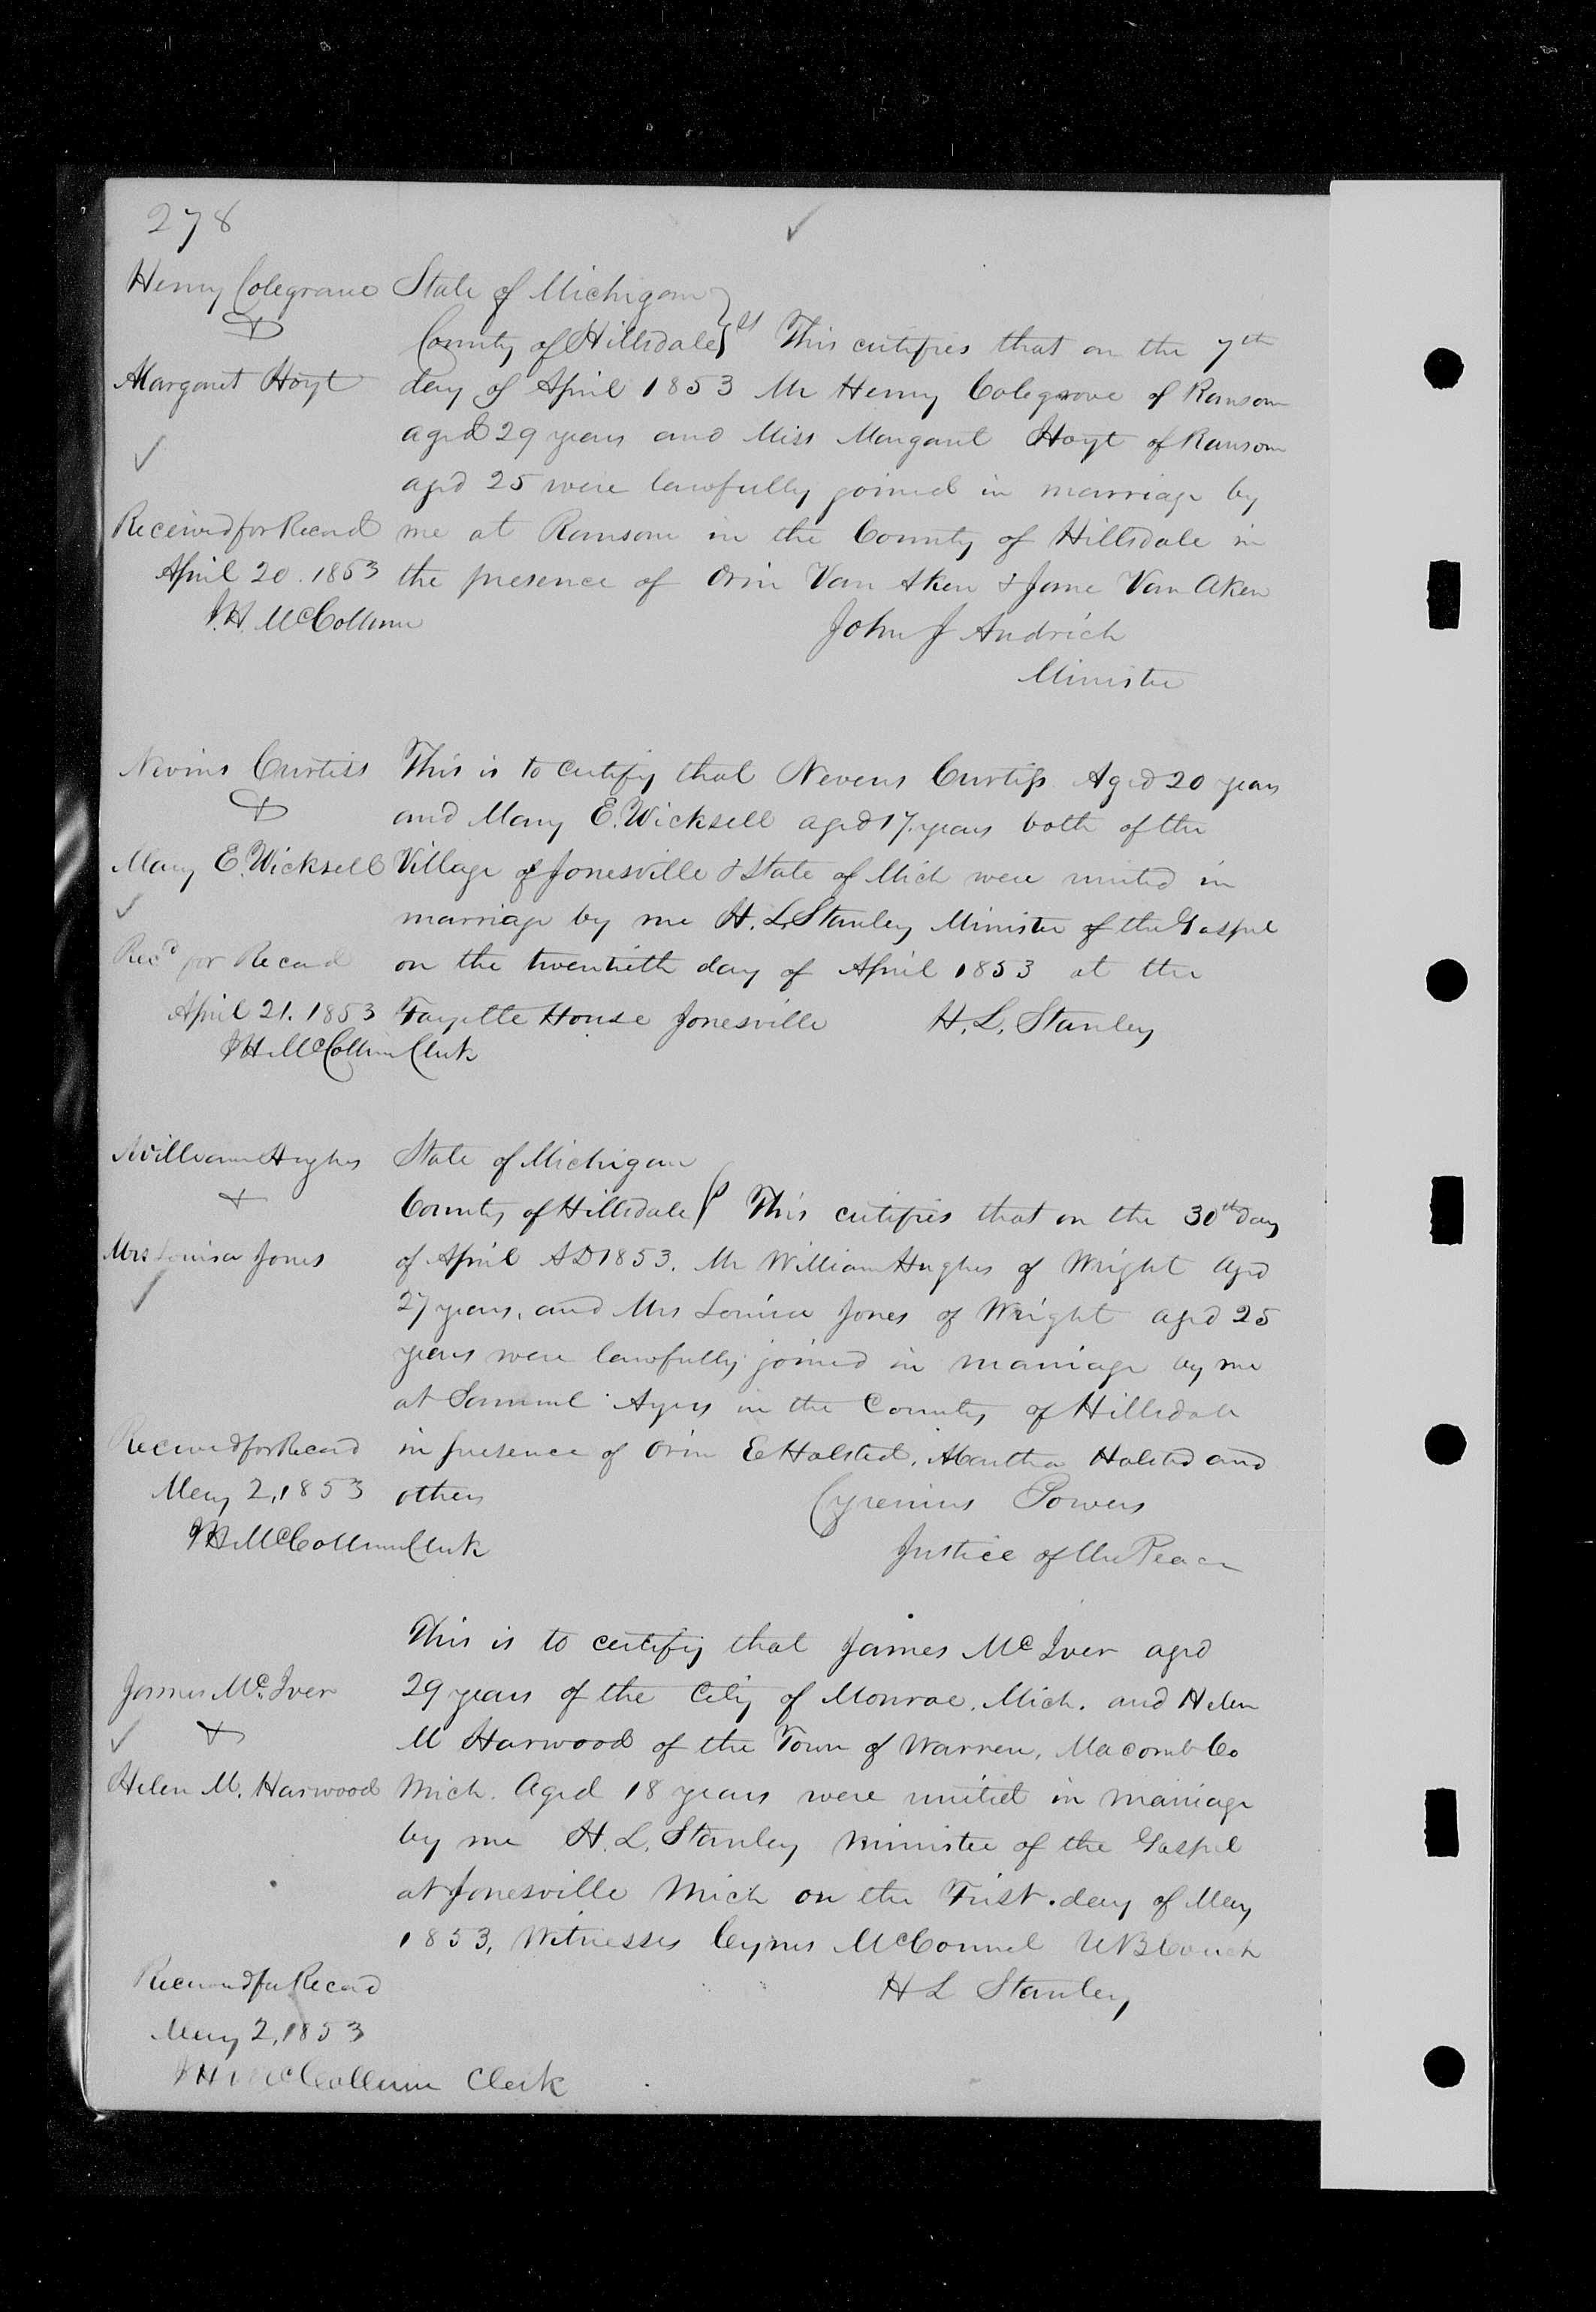 278
Henry Colegrove
&
Margaret Hoyt
Received for Record
April 20. 1853
J.H. McCollum
State of Michigan
County of Hillsdale } ss This certifies that on the 7th
day of April 1853 Mr Henry Colegrove of Ransom
aged 29 years and Miss Margaret Hoyt of Ransom
aged 25 were lawfully joined in marriage by
me at Ransom in the County of Hillsdale in
the presence of Orin Van Aken & Jane Van Aken
John J Andrich
Minister
Nevins Curtiss
&
Mary E. Wicksell
Recd for Record
April 21. 1853
J H McCollum Clerk
This is to certify that Nevens Curtiss Aged 20 years
and Mary E. Wicksell aged 17 years both of the
Village of Jonesville & State of Mich were united in
marriage by me H. L. Stanley Minister of the Gospel
on the twentieth day of April 1853 at the
Fayette House Jonesville H. L. Stanley
William Hughes
&
Mrs Louisa Jones
Received for Record
May 2, 1853
J H McCollum Clerk
State of Michigan
County of Hillsdale } ss This certifies that on the 30th day
of April AD 1853. Mr William Hughes of Wright aged
27 years, and Mrs Louisa Jones of Wright aged 25
years were lawfully joined in marriage by me
at Samuel Ayers in the County of Hillsdale
in presence of Orin E Halsted, Martha Halsted and
others Cyrenius Powers
Justice of the Peace
James McIver
&
Helen M. Harwood
Received for Record
May 2, 1853
J H McCollum Clerk
This is to certify that James McIver aged
29 years of the City of Monroe, Mich. and Helen
M Harwood of the Town of Warren, Macomb Co
Mich. Aged 18 years were united in marriage
by me H. L. Stanley minister of the Gospel
at Jonesville Mich on the First day of May
1853, Witnesses Cyrus McConnel U B Couch
H L Stanley